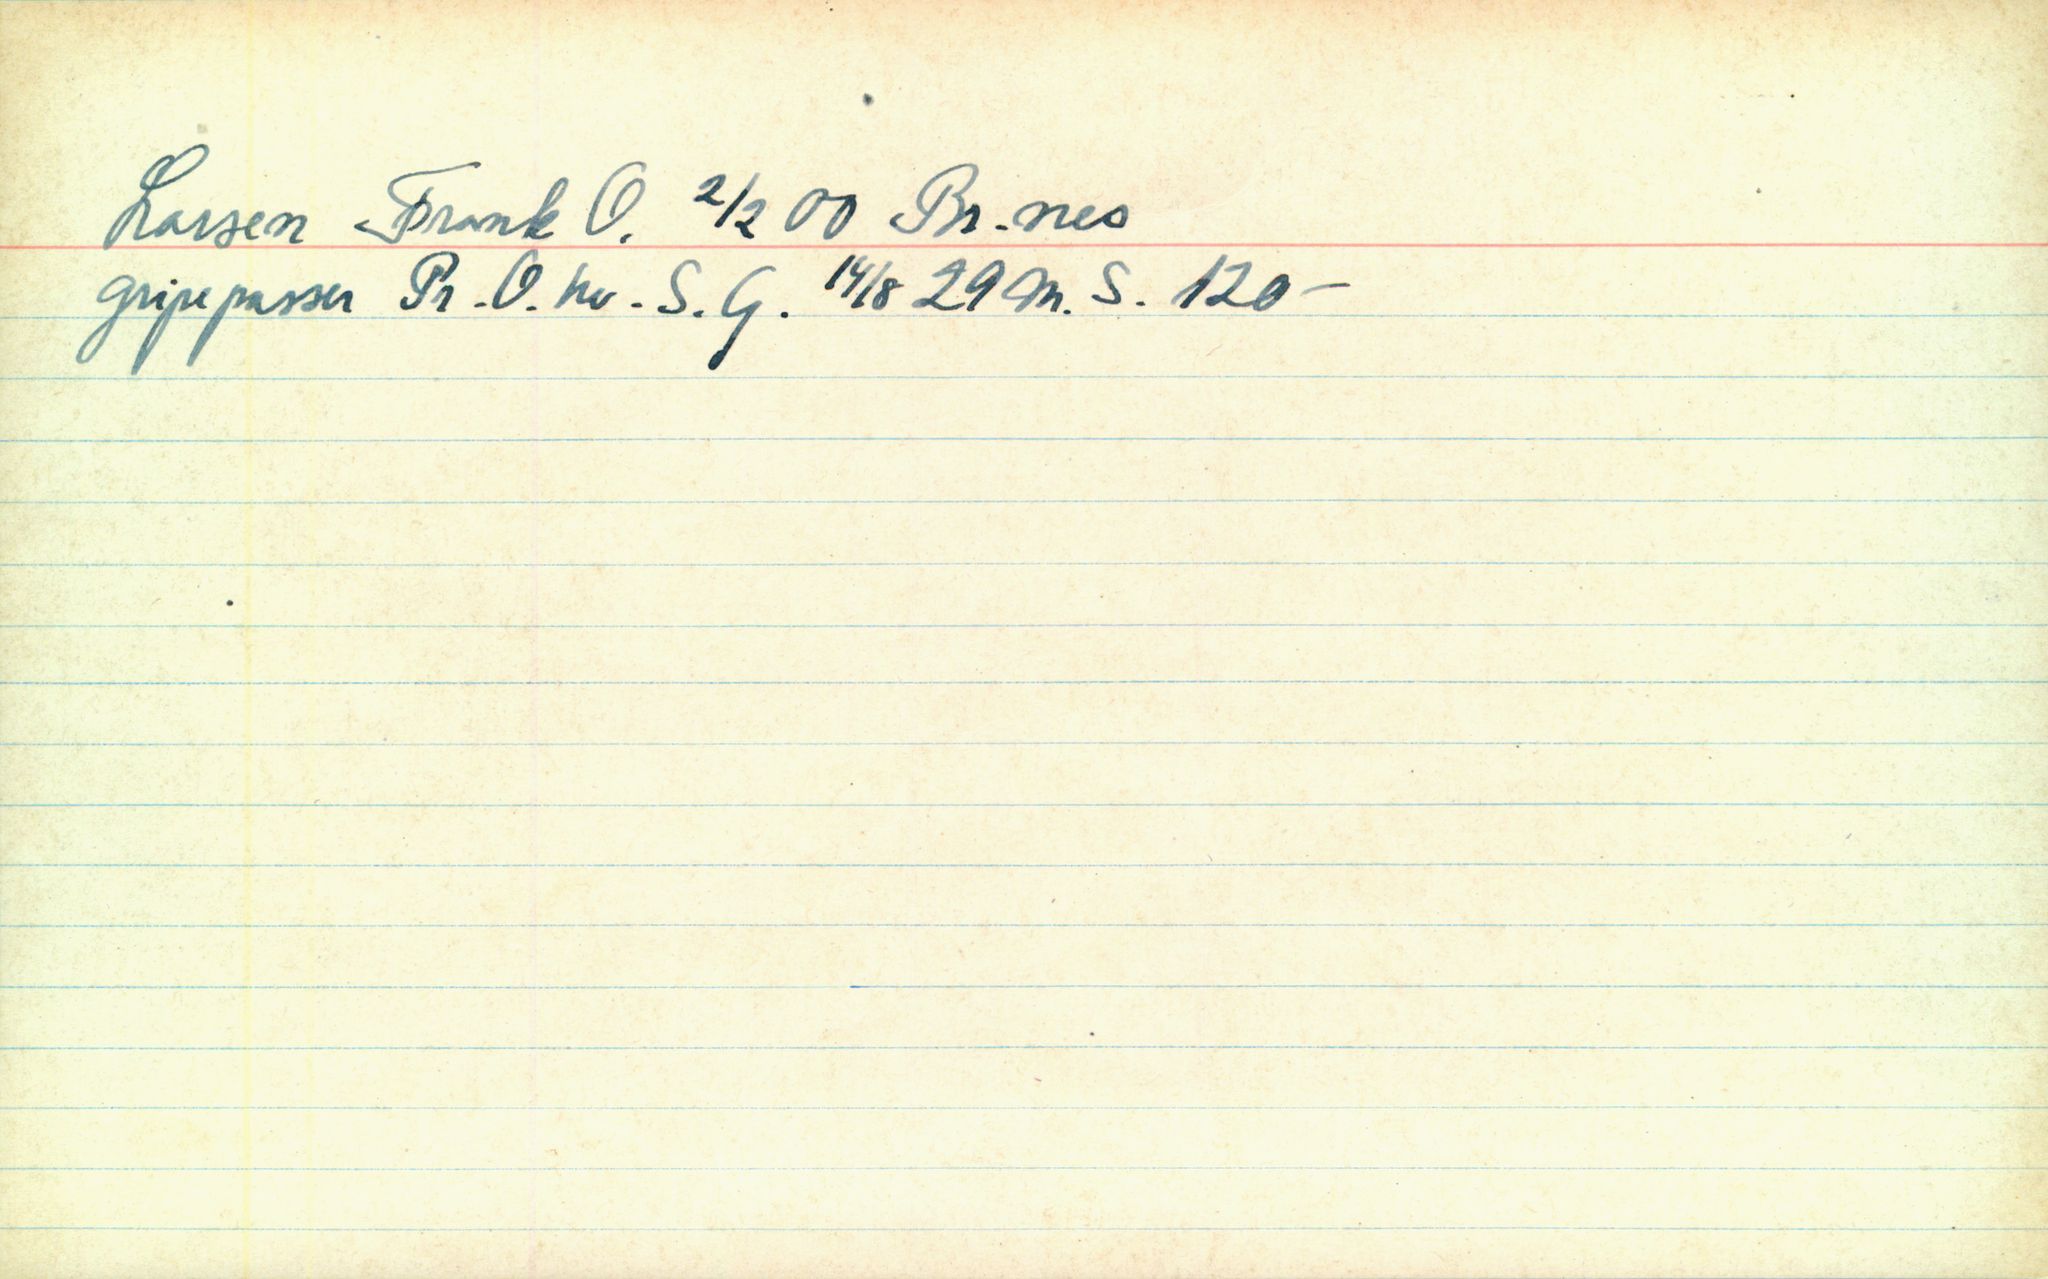 Larsen Frank O. 2/2 00 Br.nes
gripepasser Pr. O. hv. S. G. 14/8 29 M. S. 120-